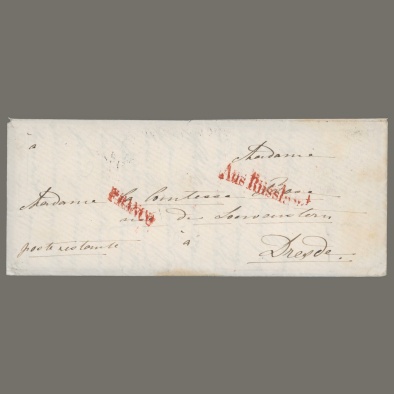 à
Madame
Aus Russland
Madame la Comtesse
FRANCO
de
poste restante
à
Dresde.